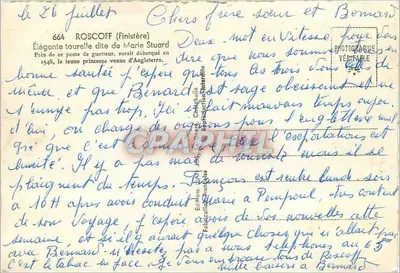 le 26 juillet
Chers frère sœur et Bernard
664 ROSCOFF (Finistère)
Élégante tourelle dite de Marie Stuard
Près de ce poste de guetteur, aurait débarqué en
1548, la jeune princesse venue d'Angleterre.
PHOTOGRAPHIE
VÉRITABLE
Deux mot en Vitesse pour vous
dire que nous sommes
bonne santée j'espère que tous les trois vous êtes de
même, et que Bernard est sage obeissant et ne
s'ennuye pas trop. Ici il fait mauvais temps aujou
d'hui, on charge des oignons pour l'engleterre mal
gré que c'est l'esportations est
limité. Il y a pas mal de touriste mais il se
plaignent du temps. François est rentré lundi soir
à 10H après avoir conduit Marie à Pempoul, très content
de son voyage. J'espère avoir de vos nouvelles cette
semaine, et si il y aurait quelque choses qui n'allait pas
avec Bernard n'hesitez pas à nous telephoner au 63
c'est le tabac en face. Je vous embrasse tous de Roscoff
mille baisers à Bernard
CPAPHIL